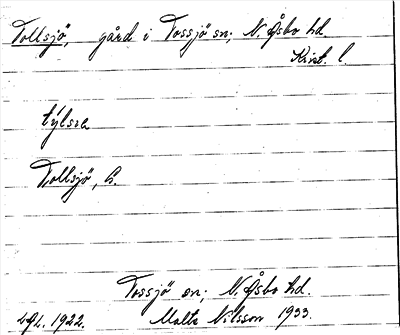 Tollsjö, gård i Tossjö sn; N. Åsbo hd.
Krist. l.
týlsra
Tollsjö, G.
Tossjö sn; N. Åsbo hd.
1922. Malte Nilsson 1933.